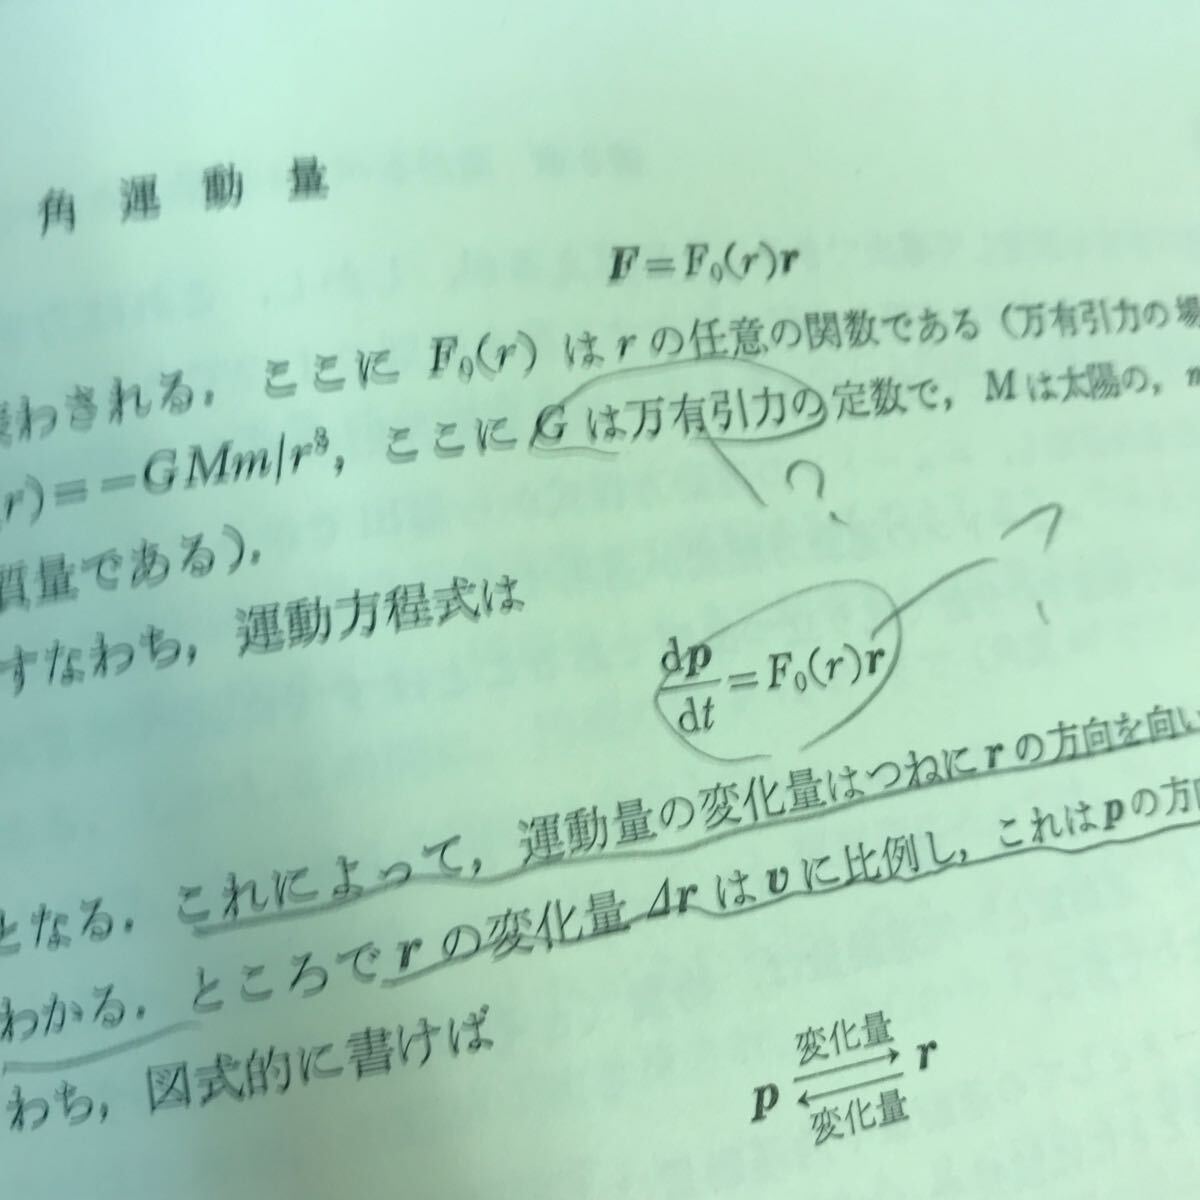 角運動量
F=F₀(r)r
わされる. ここに F₀(r) は r の任意の関数である (万有引力の場
r)=-GMm/r³, ここに G は万有引力の定数で, M は太陽の, m
質量である).
?
すなわち, 運動方程式は
dp/dt=F₀(r)r
となる. これによって, 運動量の変化量はつねに r の方向を向い
わかる. ところで r の変化量 Δr は v に比例し, これは p の方向
わち, 図式的に書けば
変化量
p ⇄ r
変化量